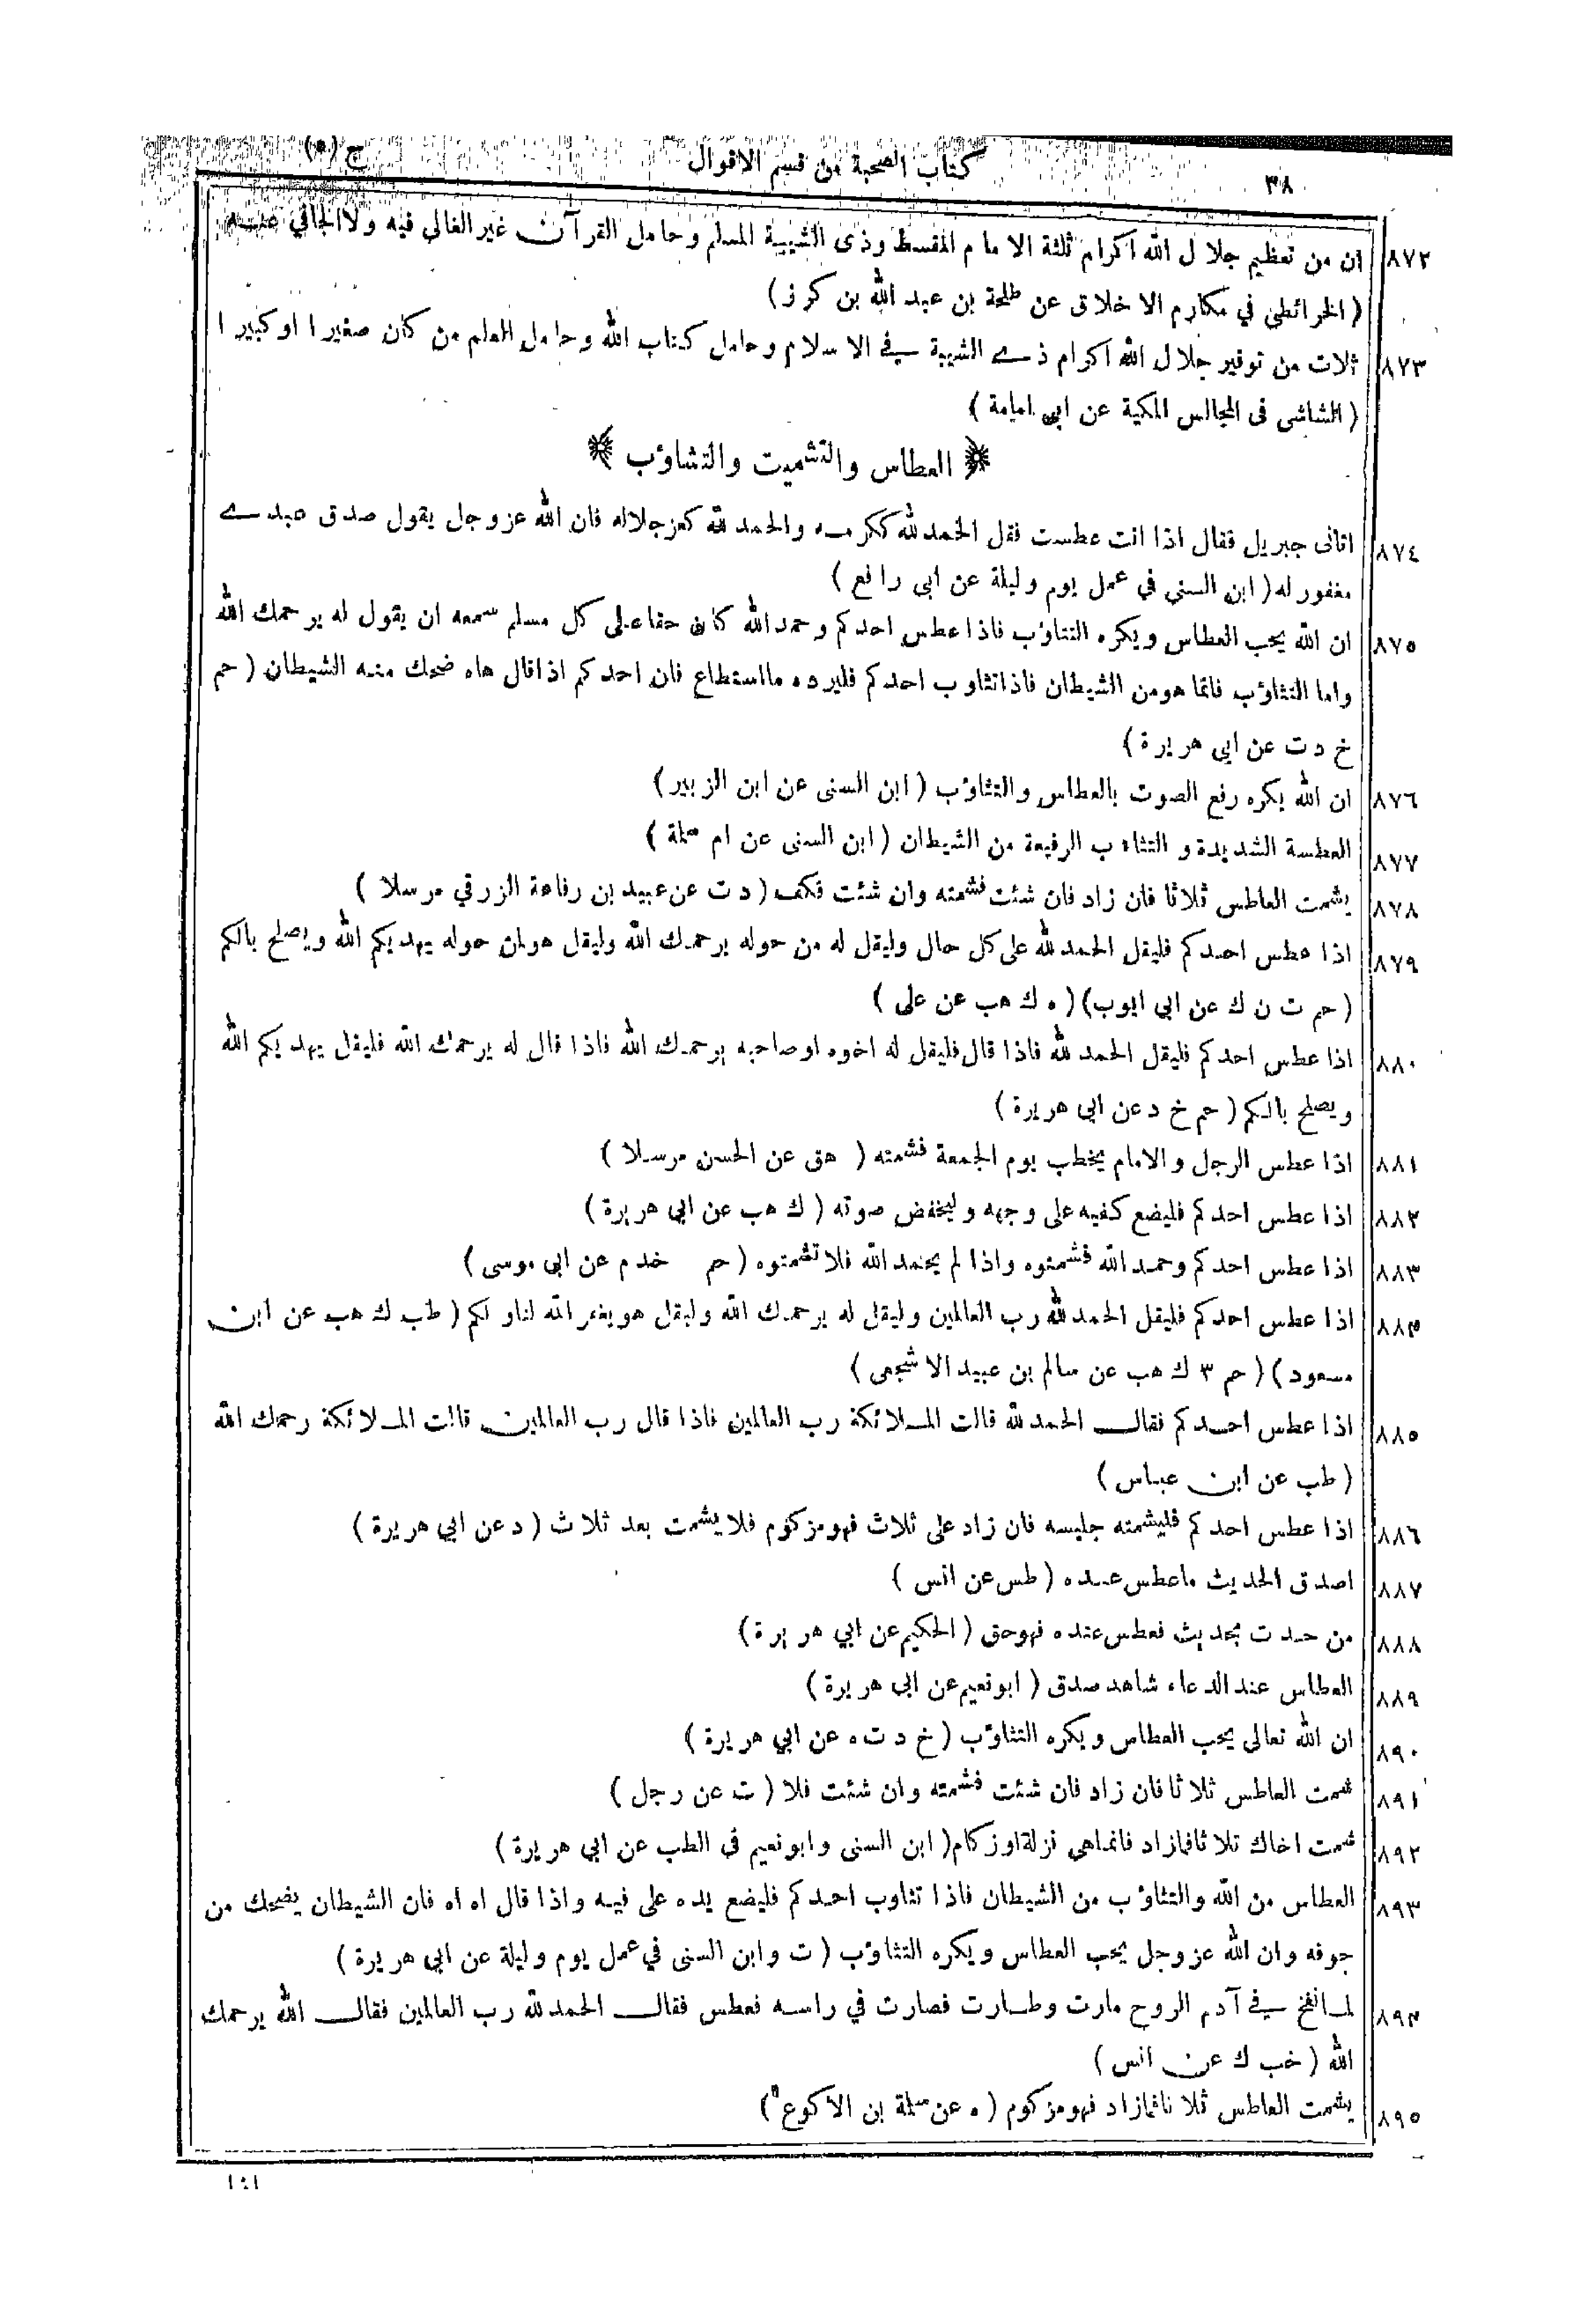 ٣٨
كتاب الصحبة من قسم الاقوال
ج (٥)
٨٧٢ ان من تعظيم جلال الله اكرام ثلثة الامام المقسط وذى الشيبة المسلم وحامل القرآن غير الغالي فيه ولا الجافي عنه
(الخرائطي في مكارم الاخلاق عن طلحة بن عبد الله بن كرز)
٨٧٣ ثلاث من توقير جلال الله اكرام ذي الشيبة في الاسلام وحامل كتاب الله وحامل العلم من كان صغيرا او كبيرا
(الشاشى فى المجالس المكية عن ابى امامة)
العطاس والتشميت والتثاؤب
٨٧٤ اتانى جبريل فقال اذا انت عطست فقل الحمد لله ككرمه والحمد لله كعز جلاله فان الله عزوجل يقول صدق عبدي
مغفور له (ابن السني في عمل يوم وليلة عن ابى رافع)
٨٧٥ ان الله يحب العطاس ويكره التثاؤب فاذا عطس احدكم وحمد الله كان حقا على كل مسلم سمعه ان يقول له يرحمك الله
واما التثاؤب فانما هو من الشيطان فاذا تثاوب احدكم فليرده ما استطاع فان احدكم اذا قال هاه ضحك منه الشيطان (حم
خ د ت عن ابي هريرة)
٨٧٦ ان الله يكره رفع الصوت بالعطاس والتثاؤب (ابن السنى عن ابن الزبير)
٨٧٧ العطسة الشديدة و التثاءب الرفيعة من الشيطان (ابن السنى عن ام سلمة)
٨٧٨ يشمت العاطس ثلاثا فان زاد فان شئت فشمته وان شئت فكف (د ت عن عبيد بن رفاعة الزرقي مرسلا)
٨٧٩ اذا عطس احدكم فليقل الحمد لله على كل حال وليقل له من حوله يرحمك الله وليقل هو لمن حوله يهديكم الله ويصلح بالكم
(حم ت ن ك عن ابي ايوب) (ه ك هب عن على)
٨٨٠ اذا عطس احدكم فليقل الحمد لله فاذا قال فليقل له اخوه او صاحبه يرحمك الله فاذا قال له يرحمك الله فليقل يهديكم الله
ويصلح بالكم (حم خ د عن ابى هريرة)
٨٨١ اذا عطس الرجل والامام يخطب يوم الجمعة فشمته (هق عن الحسن مرسلا)
٨٨٢ اذا عطس احدكم فليضع كفيه على وجهه وليخفض صوته (ك هب عن ابي هريرة)
٨٨٣ اذا عطس احدكم وحمد الله فشمتوه واذا لم يحمد الله فلا تشمتوه (حم خد م عن ابى موسى)
٨٨٤ اذا عطس احدكم فليقل الحمد لله رب العالمين وليقل له يرحمك الله وليقل هو يغفر الله لنا ولكم (طب ك هب عن ابن
مسعود) (حم ٣ ك هب عن سالم بن عبيد الاشجعى)
٨٨٥ اذا عطس احدكم فقال الحمد لله قالت الملائكة رب العالمين فاذا قال رب العالمين قالت الملائكة رحمك الله
(طب عن ابن عباس)
٨٨٦ اذا عطس احدكم فليشمته جليسه فان زاد على ثلاث فهو مزكوم فلا يشمت بعد ثلاث (د عن ابي هريرة)
٨٨٧ اصدق الحديث ما عطس عنده (طس عن انس)
٨٨٨ من حدث بحديث فعطس عنده فهو حق (الحكيم عن ابي هريرة)
٨٨٩ العطاس عند الدعاء شاهد صدق (ابو نعيم عن ابى هريرة)
٨٩٠ ان الله تعالى يحب العطاس ويكره التثاؤب (خ د ت ه عن ابي هريرة)
٨٩١ شمت العاطس ثلاثا فان زاد فان شئت فشمته وان شئت فلا (ت عن رجل)
٨٩٢ شمت اخاك ثلاثا فما زاد فانما هي نزلة او زكام (ابن السنى وابو نعيم في الطب عن ابي هريرة)
٨٩٣ العطاس من الله والتثاؤب من الشيطان فاذا تثاوب احدكم فليضع يده على فيه واذا قال اه اه فان الشيطان يضحك من
جوفه وان الله عزوجل يحب العطاس ويكره التثاؤب (ت وابن السنى في عمل يوم وليلة عن ابي هريرة)
٨٩٤ لما نفخ في آدم الروح مارت وطارت فصارت في راسه فعطس فقال الحمد لله رب العالمين فقال الله يرحمك
الله (خب ك عن انس)
٨٩٥ يشمت العاطس ثلاثا فما زاد فهو مزكوم (ه عن سلمة بن الاكوع)